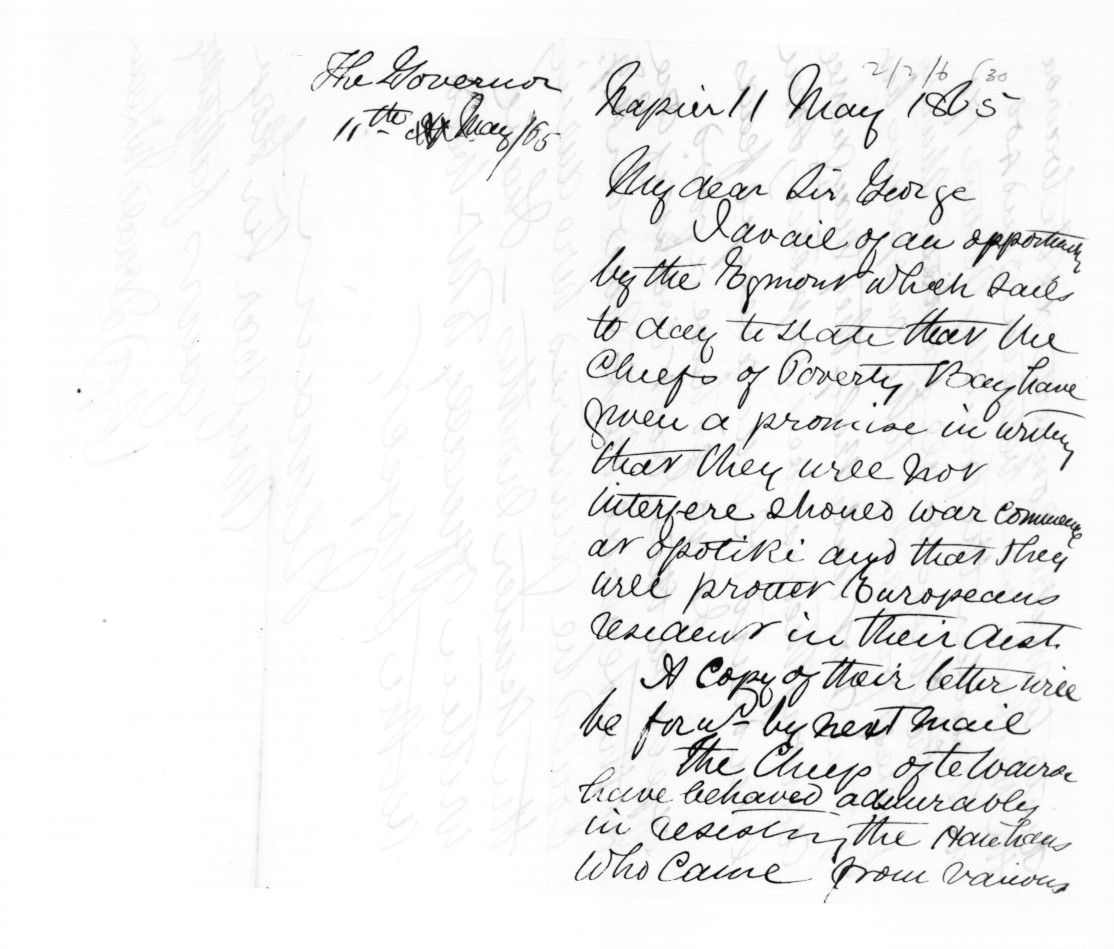 The Governor
11th May/65
2/2/6 30
Napier 11 May 1865
My dear Sir George
I avail of an opportunity
by the Egmont which sails
to day to state that the
Chiefs of Poverty Bay have
given a promise in writing
that they will not
interfere should war commence
at Opotiki and that they
will protect Europeans
resident in their dist.
A Copy of their letter will
be forwd by next mail
The Chiefs of te Wairoa
have behaved admirably
in resisting the Hauhaus
who came from various